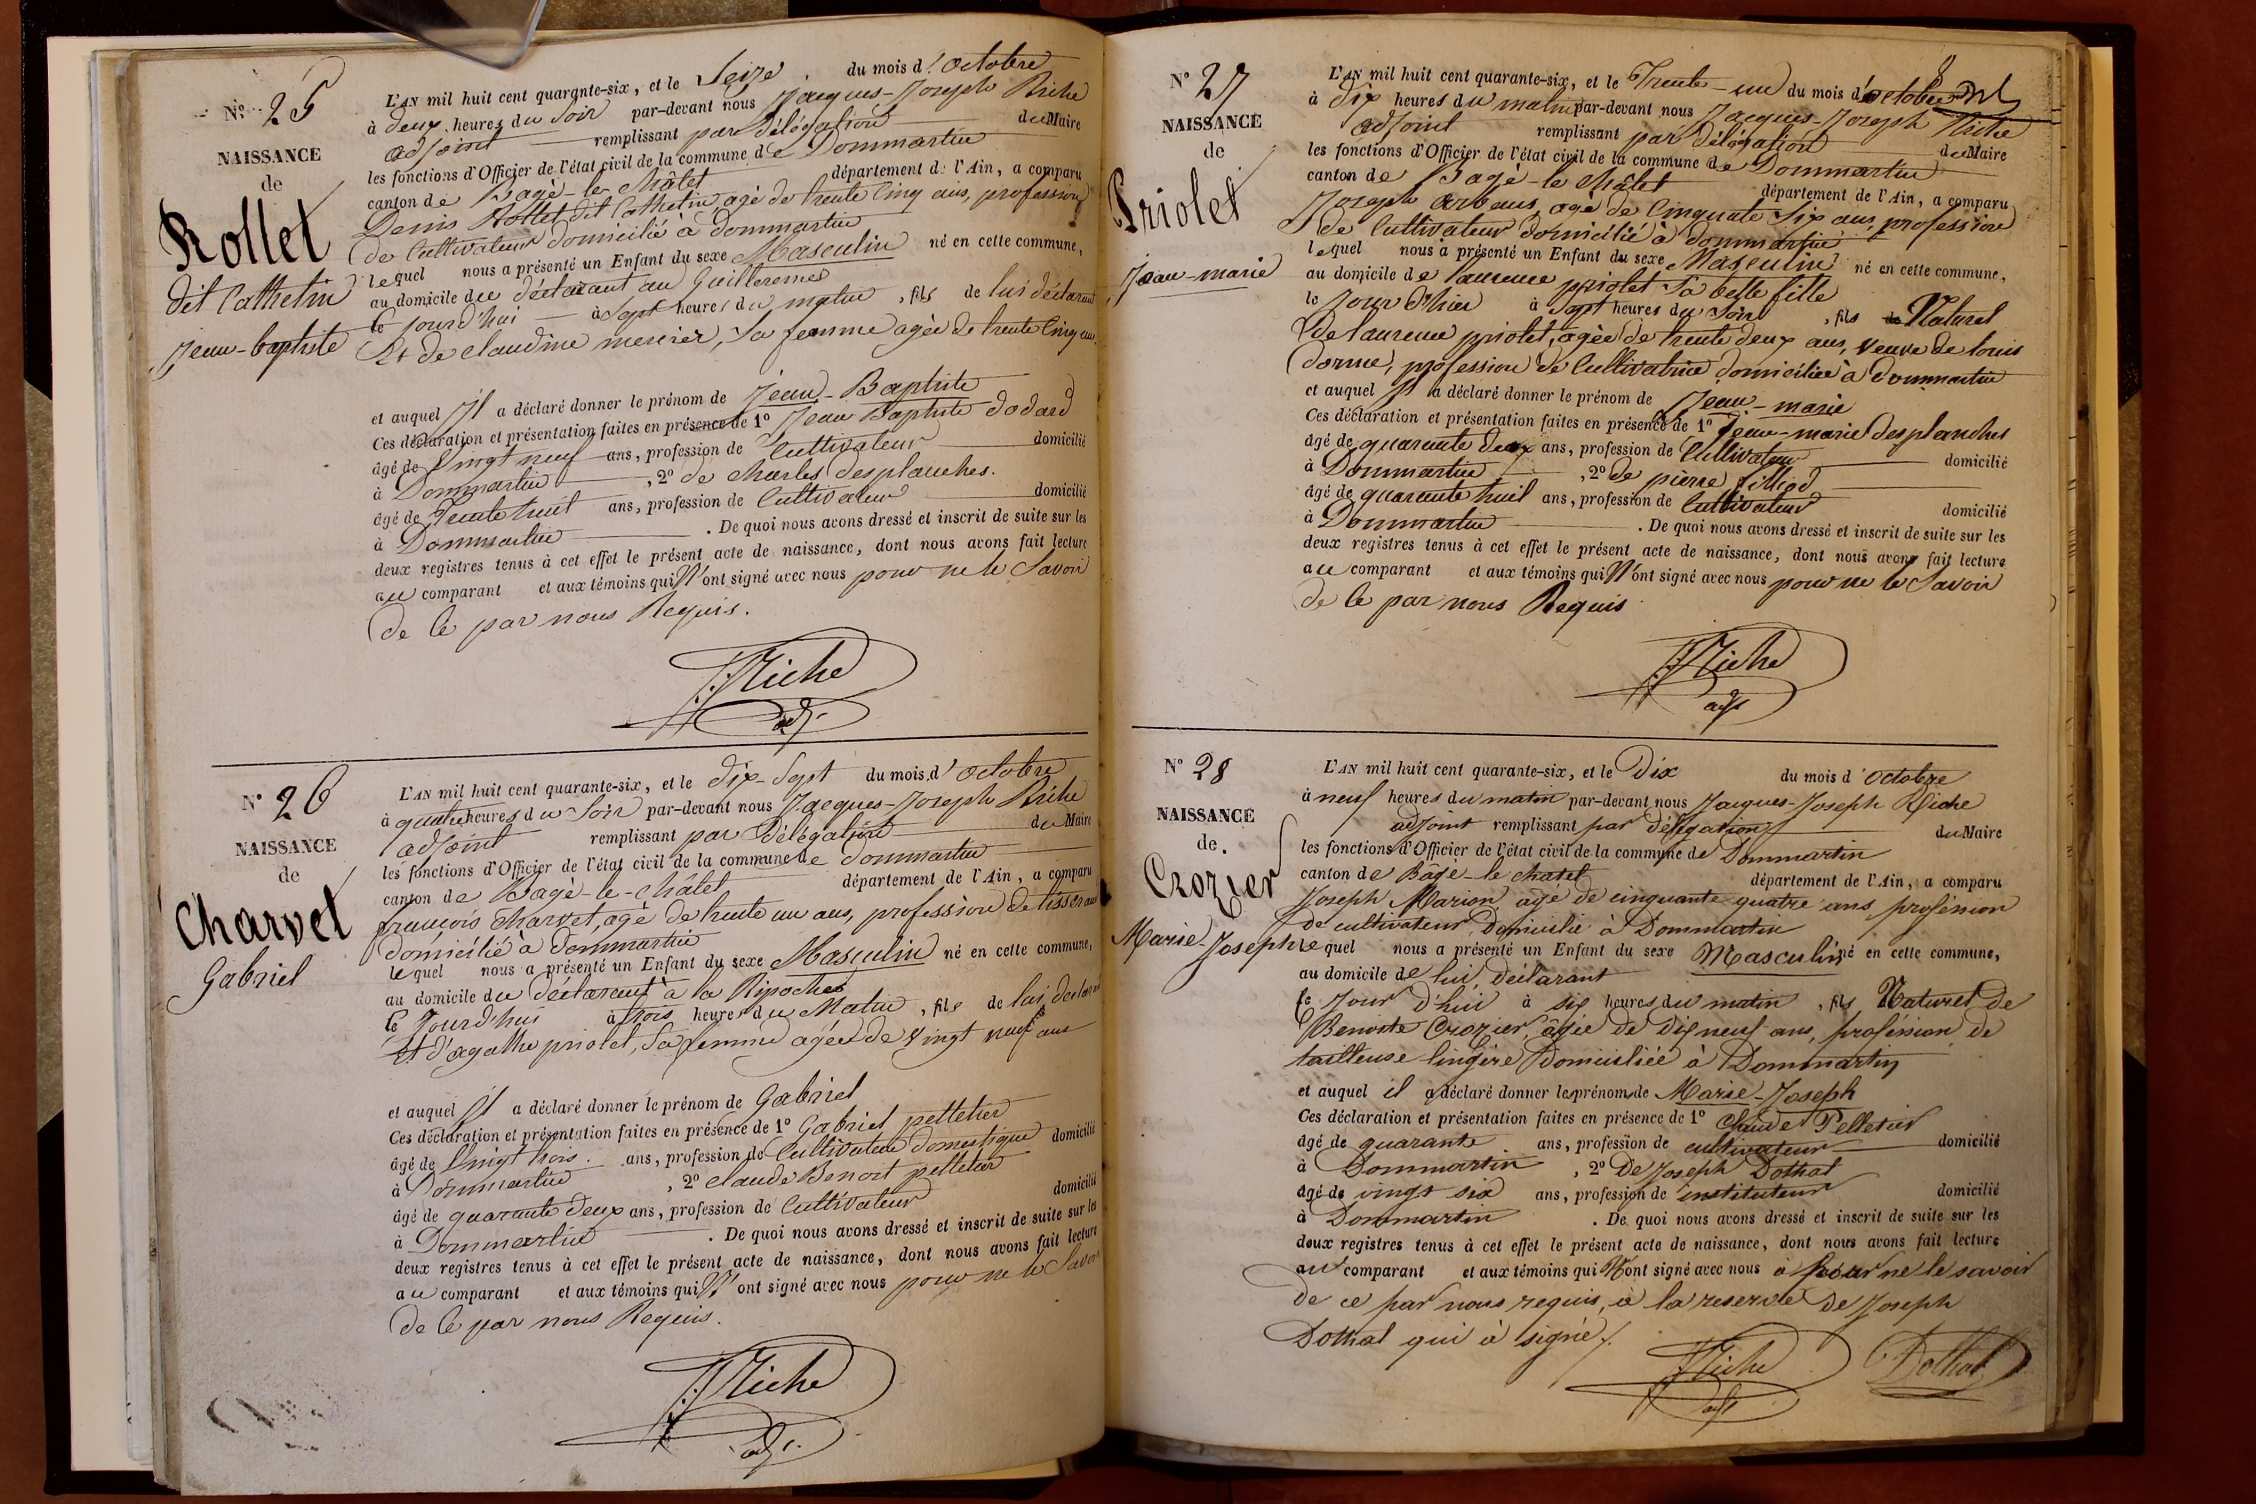 N° 25
NAISSANCE
de
Rollet
dit Cathelin
Jean-baptiste
L'AN mil huit cent quarante-six, et le Seize du mois d'octobre
à deux heures du Soir par-devant nous Jacques-Joseph Riche
adjoint remplissant par Délégation du Maire
les fonctions d'Officier de l'état civil de la commune de Dommartin
canton de Bagé-le-Châtel département de l'Ain, a comparu
Denis Rollet dit Cathelin, agé de trente Cinq ans, profession
de Cultivateur domicilié à dommartin
lequel nous a présenté un Enfant du sexe Masculin né en cette commune,
au domicile du déclarant au Guillermes
le jourd'hui à Sept heures du matin, fils de lui déclarant
Et de claudine mercier, Sa femme agée de trente Cinq ans
et auquel Il a déclaré donner le prénom de Jean-Baptiste
Ces déclaration et présentation faites en présence de 1° Jean Baptiste dodard
âgé de Vingt neuf ans, profession de Cultivateur domicilié
à Dommartin, 2° de charles desplanches.
âgé de Trente huit ans, profession de Cultivateur domicilié
à Dommartin. De quoi nous avons dressé et inscrit de suite sur les
deux registres tenus à cet effet le présent acte de naissance, dont nous avons fait lecture
au comparant et aux témoins qui N'ont signé avec nous pour ne le Savoir
de Ce par nous Requis.
J.J. Riche
adj.
N° 26
NAISSANCE
de
Charvet
Gabriel
L'AN mil huit cent quarante-six, et le dix-Sept du mois d'octobre
à quatre heures du Soir par-devant nous Jacques-Joseph Riche
adjoint remplissant par Délégation du Maire
les fonctions d'Officier de l'état civil de la commune de Dommartin
canton de Bagé-le-châtel département de l'Ain, a comparu
françois Charvet, agé de trente un ans, profession de tisserand
domicilié à dommartin
lequel nous a présenté un Enfant du sexe Masculin né en cette commune,
au domicile du déclarant à la Ripoches
le Jourd'hui à trois heures du Matin, fils de lui, déclarant
Et d'agathe priolet, Sa femme agée de Vingt neuf ans
et auquel Il a déclaré donner le prénom de Gabriel
Ces déclaration et présentation faites en présence de 1° Gabriel pelletier
âgé de Vingt trois ans, profession de Cultivateur domestique domicilié
à Dommartin, 2° claude Benoit pelletier
âgé de quarante deux ans, profession de Cultivateur domicilié
à Dommartin. De quoi nous avons dressé et inscrit de suite sur les
deux registres tenus à cet effet le présent acte de naissance, dont nous avons fait lecture
au comparant et aux témoins qui N'ont signé avec nous pour ne le Savoir
de Ce par nous Requis.
J.J. Riche
adj.
N° 27
NAISSANCE
de
Priolet
Jean-marie
L'AN mil huit cent quarante-six, et le Trente-un du mois d'octobre
à dix heures du matin par-devant nous Jacques-Joseph Riche
adjoint remplissant par délégation du Maire
les fonctions d'Officier de l'état civil de la commune de Dommartin
canton de Bagé-le Châtel département de l'Ain, a comparu
Joseph arbans, agé de Cinquante Six ans, profession
de Cultivateur domicilié à dommartin
lequel nous a présenté un Enfant du sexe Masculin né en cette commune,
au domicile de laurence priolet Sa belle fille
le Jour d'hier à Sept heures du Soir, fils de Naturel
de laurence priolet, agée de trente deux ans, Veuve de louis
dorme, profession de Cultivatrice domiciliée à dommartin
et auquel Il a déclaré donner le prénom de Jean-marie
Ces déclaration et présentation faites en présence de 1° Jean-marie desplanches
âgé de quarante deux ans, profession de Cultivateur domicilié
à Dommartin, 2° de pierre filliod
âgé de quarante huit ans, profession de Cultivateur domicilié
à Dommartin. De quoi nous avons dressé et inscrit de suite sur les
deux registres tenus à cet effet le présent acte de naissance, dont nous avons fait lecture
au comparant et aux témoins qui N'ont signé avec nous pour ne le Savoir
de Ce par nous Requis
J.J. Riche
adj.
N° 28
NAISSANCE
de.
Crozier
Marie-Joseph
L'AN mil huit cent quarante-six, et le Dix du mois d'octobre
à neuf heures du matin par-devant nous Jacques-Joseph Riche
adjoint remplissant par délégation du Maire
les fonctions d'Officier de l'état civil de la commune de Dommartin
canton de Bâgé-le chatel département de l'Ain, a comparu
Joseph Marion agé de cinquante quatre ans profession
de cultivateur, Domicilié à Dommartin
lequel nous a présenté un Enfant du sexe Masculin né en cette commune,
au domicile de lui, déclarant
le Jour d'hui à six heures du matin, fils Naturel de
Benoite Crozier, âgée de dix neuf ans, profession de
tailleuse lingère Domiciliée à Dommartin
et auquel il a déclaré donner les prénoms de Marie-Joseph
Ces déclaration et présentation faites en présence de 1° Claude Pelletier
âgé de quarante ans, profession de cultivateur domicilié
à Dommartin, 2° De Joseph Dothal
âgé de vingt six ans, profession de instituteur domicilié
à Dommartin. De quoi nous avons dressé et inscrit de suite sur les
deux registres tenus à cet effet le présent acte de naissance, dont nous avons fait lecture
au comparant et aux témoins qui N'ont signé avec nous pour ne le savoir
de ce par nous requis, à la reserve de Joseph
Dothal qui à signé.
J.J. Riche
adj.
Dothal